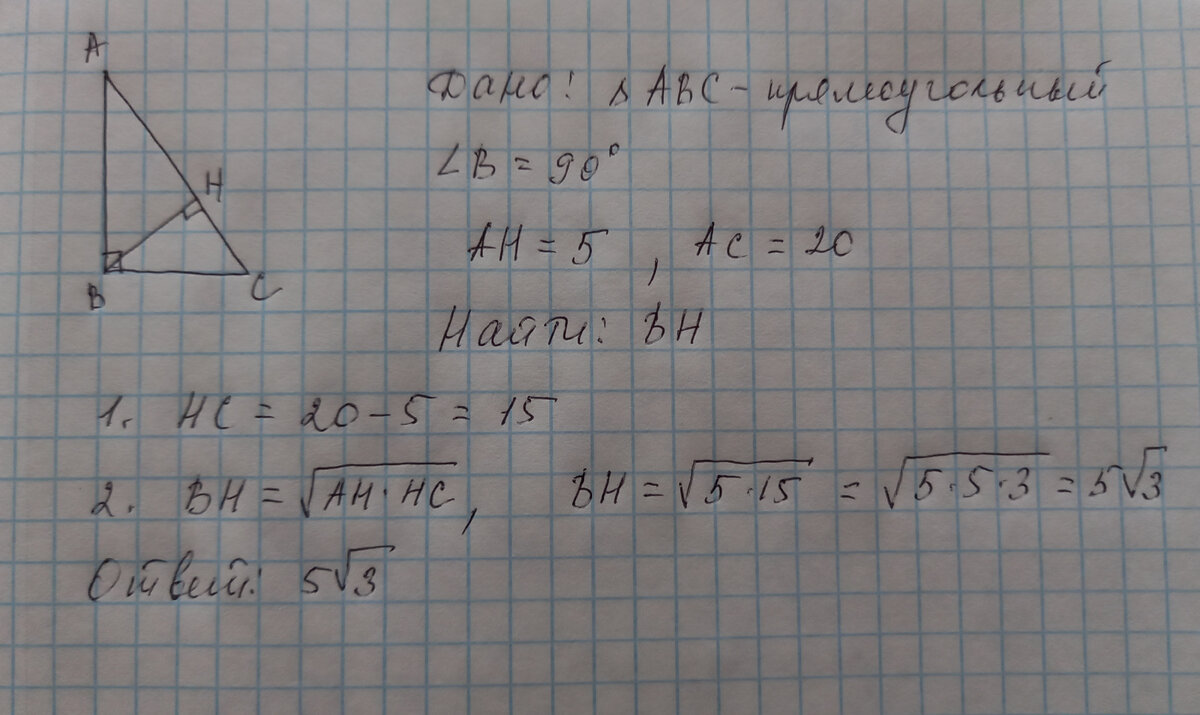 A
H
B
C
Дано: △ABC - прямоугольный
∠B = 90°
AH = 5 , AC = 20
Найти: BH
1. HC = 20 - 5 = 15
2. BH = √AH·HC, BH = √5·15 = √5·5·3 = 5√3
Ответ: 5√3